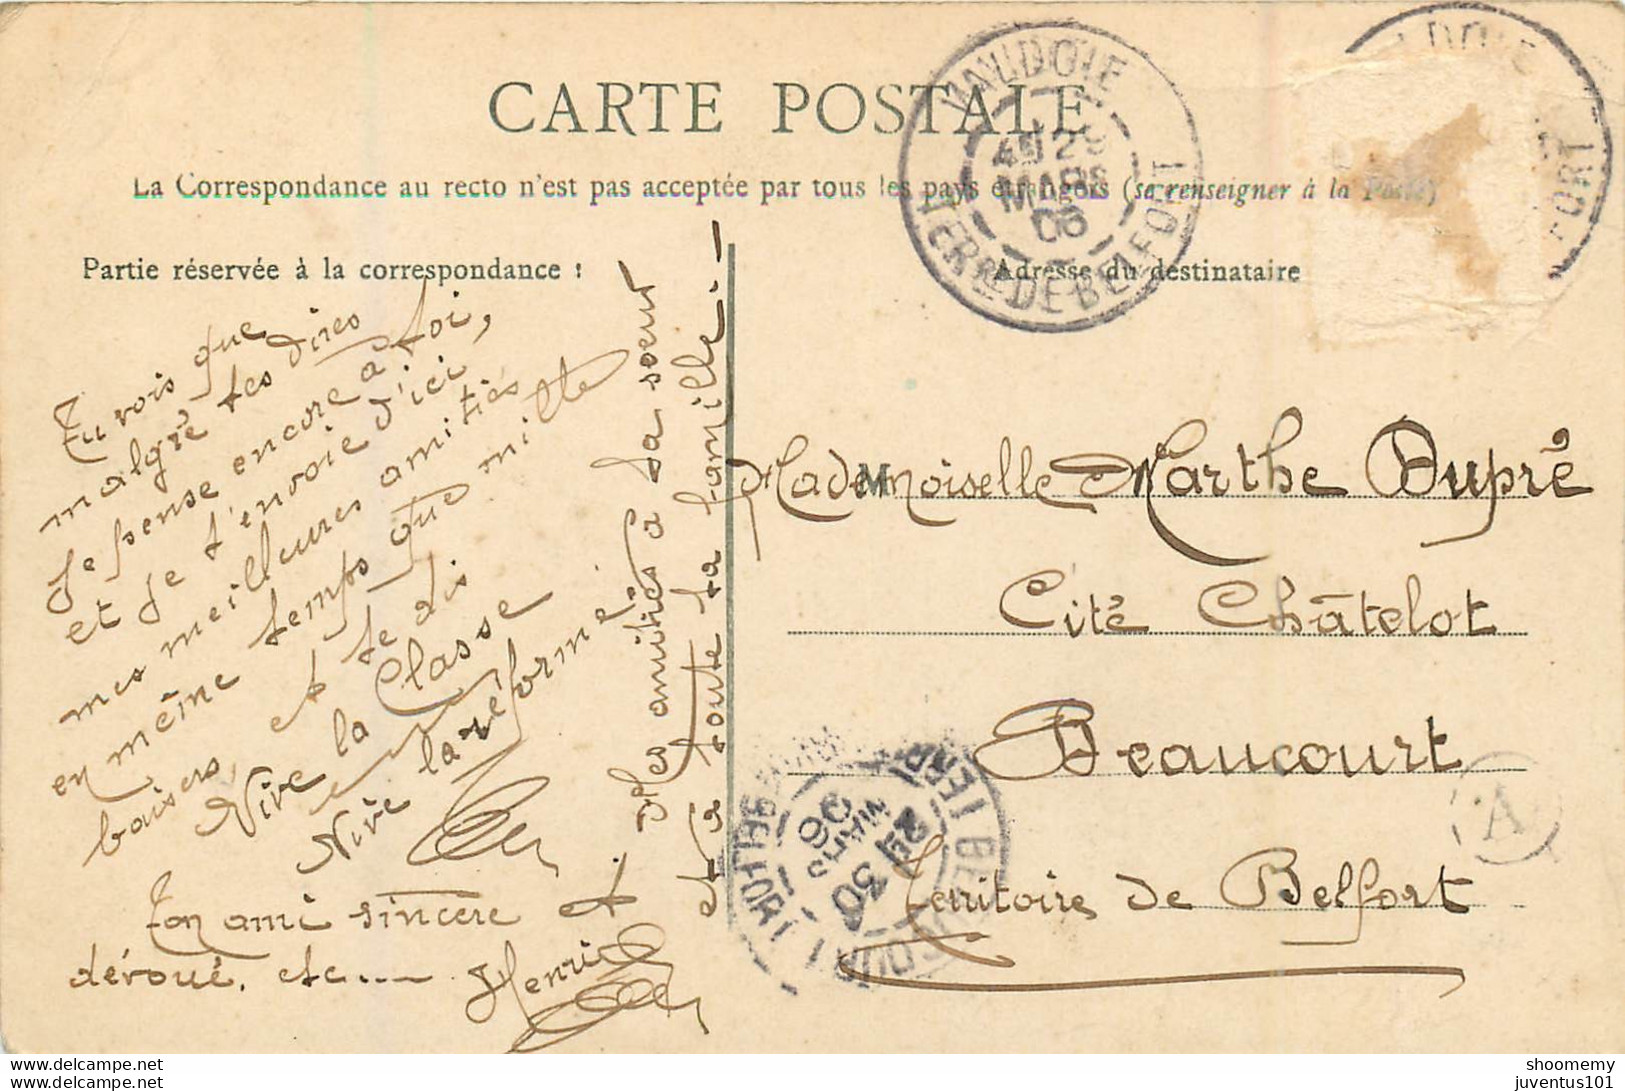 CARTE POSTALE
La Correspondance au recto n'est pas acceptée par tous les pays étrangers (se renseigner à la Poste)
Partie réservée à la correspondance :
Adresse du destinataire
Tu vois que
malgré tes dires
je pense encore à toi,
et je t'envoie d'ici
mes meilleures amitiés
en même temps que mille
baisers, et te dis
Vive la Classe
Vive la réforme!
Ton ami sincère et
déroué, etc....
Henri
Mes amitiés à ta sœur
et à toute ta famille.
Mademoiselle Marthe Dupré
M
Cité Châtelot
Beaucourt
Territoire de Belfort
VALDOIE
29
MARS
06
TERRE DE BELFORT
30
MARS
06
A
https://www.delcampe.net
https://www.delcampe.net
shoomemy
juventus101